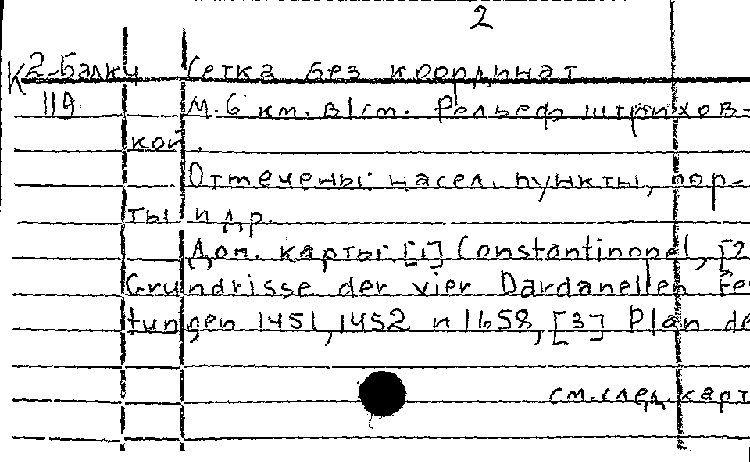 2
К2-Балки Сетка без координат
119 М. 6 км. в 1 см. Рельеф штрихов-
кой.
Отмечены: насел. пункты, пор-
ты и др.
Доп. карты: [1] Constantinopel, [2
Grundrisse der vier Dardanellen Fes
tungen 1451, 1452 и 1658, [3] Plan de
см. след. карт